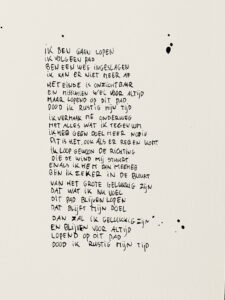 IK BEN GAAN LOPEN
IK VOLG EEN PAD
BEN EEN WEG INGESLAGEN
IK KAN ER NIET MEER AF
HET EINDE IS ONZICHTBAAR
EN MISSCHIEN WEL VOOR ALTIJD
MAAR LOPEND OP DIT PAD
DOOD IK RUSTIG MIJN TIJD
IK VERMAAK ME ONDERWEG
MET ALLES WAT IK TEGENKOM
IK HEB GEEN DOEL MEER NODIG
DIT IS HET, OOK ALS ER REGEN KOMT
IK LOOP GEWOON DE RICHTING
DIE DE WIND MIJ STUURT
EN ALS IK HEM DAN MEEHEB
BEN IK ZEKER IN DE BUURT
VAN HET GROTE GELUKKIG ZIJN
DAT WAT IK NU WEL
DIT PAD BLIJVEN LOPEN
DAT BLIJFT MIJN DOEL
DAN ZAL IK GELUKKIG ZIJN
EN BLIJVEN VOOR ALTIJD
LOPEND OP DIT PAD
DOOD IK RUSTIG MIJN TIJD